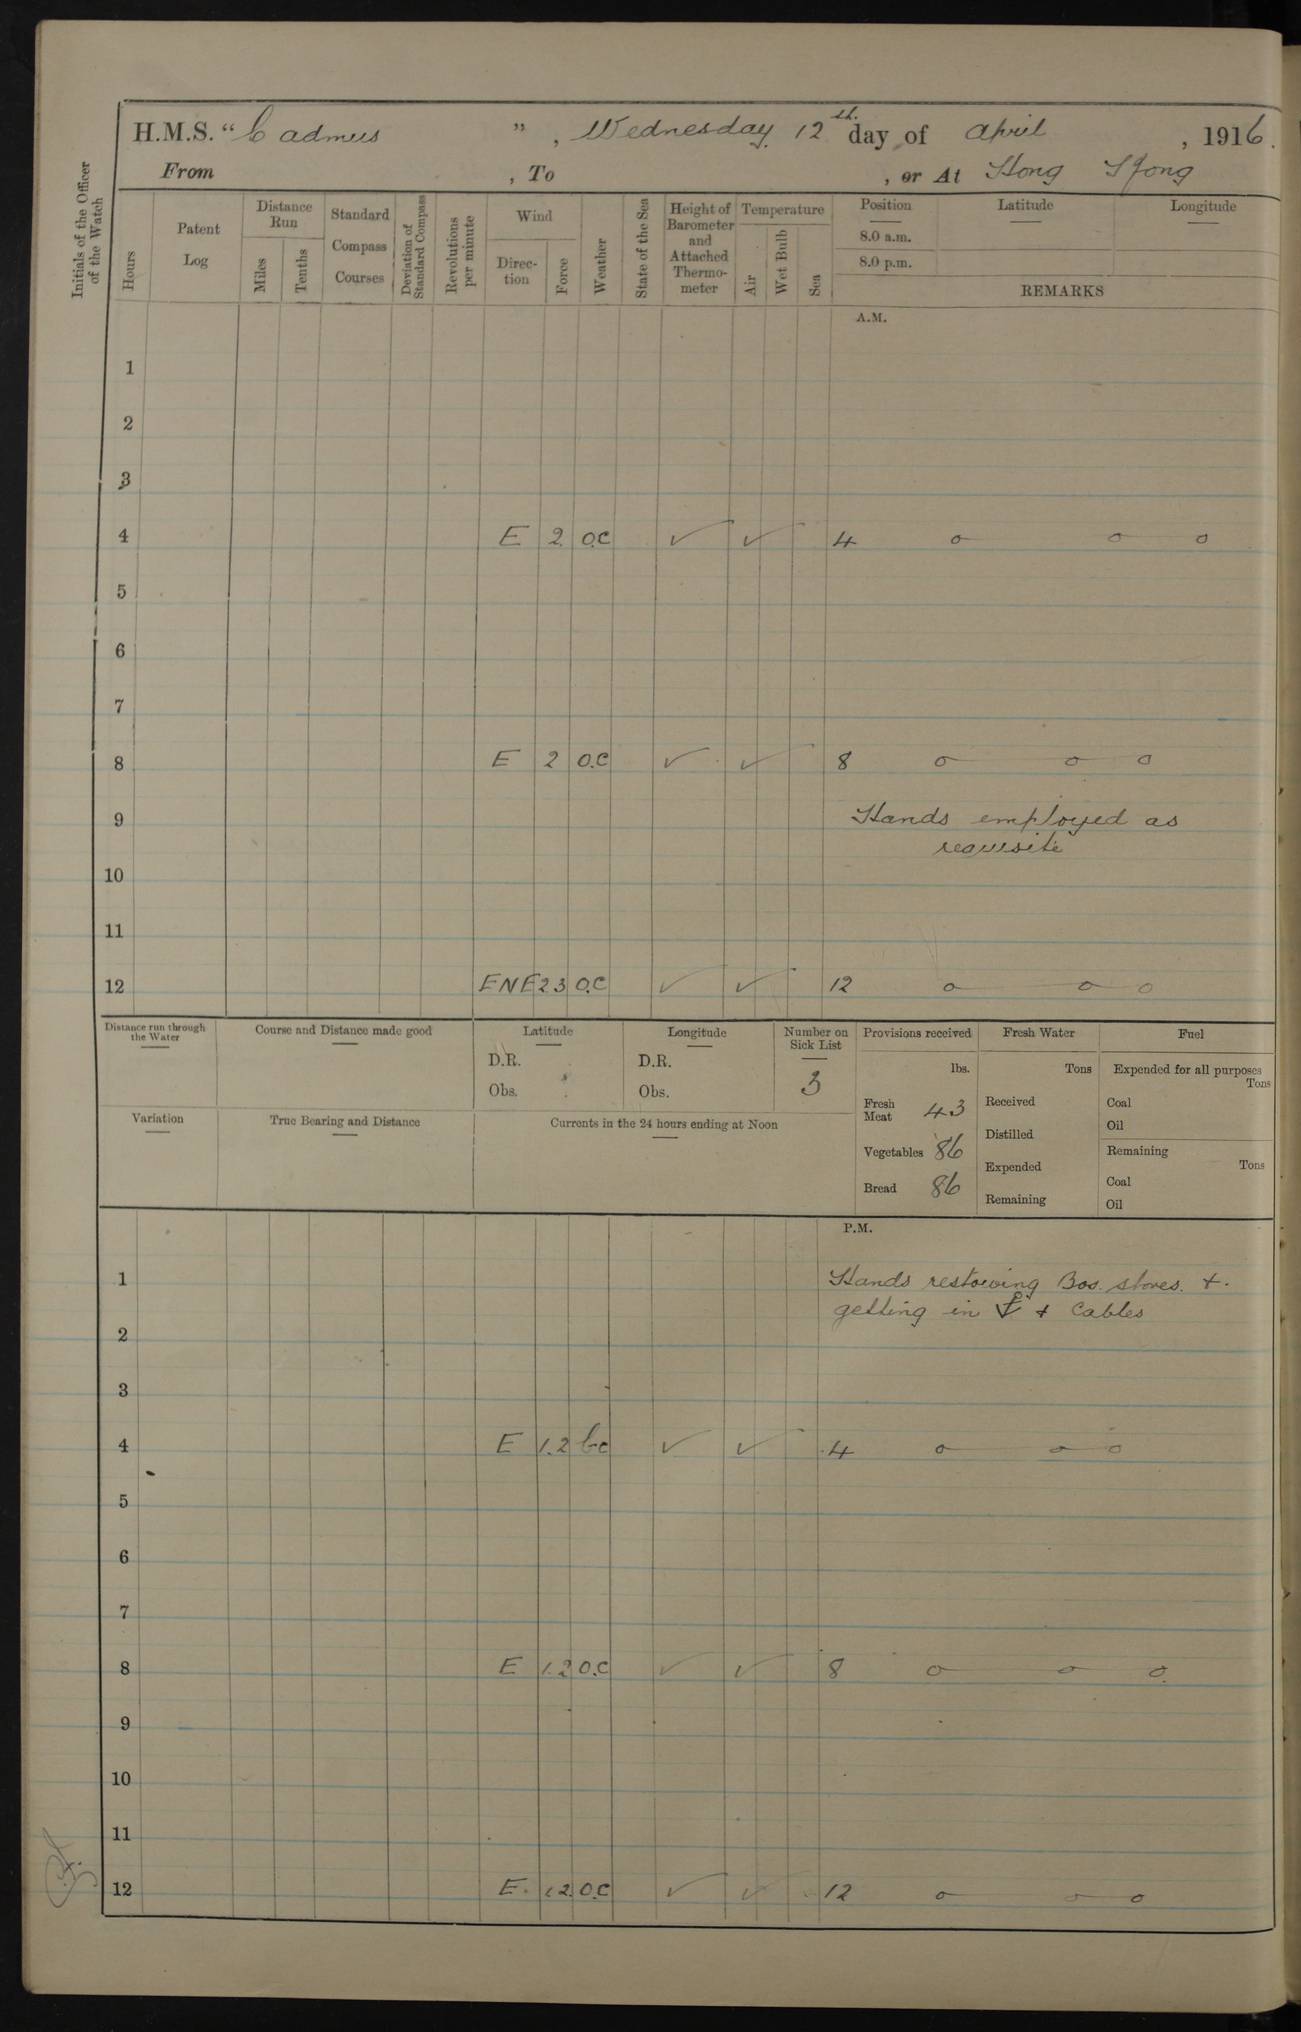 H.M.S. "Cadmus", Wednesday 12th day of April, 1916.
From , To , or At Hong Kong
Initials of the Officer of the Watch
Hours
Patent Log
Distance Run
Miles
Tenths
Standard Compass Courses
Deviation of Standard Compass
Revolutions per minute
Wind
Direction
Force
Weather
State of the Sea
Height of Barometer and Attached Thermometer
Temperature
Air
Wet Bulb
Sea
Position Latitude Longitude
8.0 a.m.
8.0 p.m.
REMARKS
A.M.
1
2
3
4 E 2 O.C ✓ ✓ 4 o o o
5
6
7
8 E 2 O.C ✓ ✓ 8 o o o
9 Hands employed as
requisite
10
11
12 ENE 2 3 O.C ✓ ✓ 12 o o o
Distance run through the Water
Course and Distance made good
Latitude
D.R.
Obs.
Longitude
D.R.
Obs.
Number on Sick List
3
Provisions received
lbs.
Fresh Meat 43
Vegetables 86
Bread 86
Fresh Water
Tons
Received
Distilled
Expended
Remaining
Fuel
Expended for all purposes
Tons
Coal
Oil
Remaining
Tons
Coal
Oil
Variation
True Bearing and Distance
Currents in the 24 hours ending at Noon
P.M.
1 Hands restowing Bos. stores. +
getting in ⚓ + Cables
2
3
4 E 1.2 bc ✓ ✓ 4 o o o
5
6
7
8 E 1.2 O.C ✓ ✓ 8 o o o
9
10
11
12 E. 1.2. O.C ✓ ✓ 12 o o o